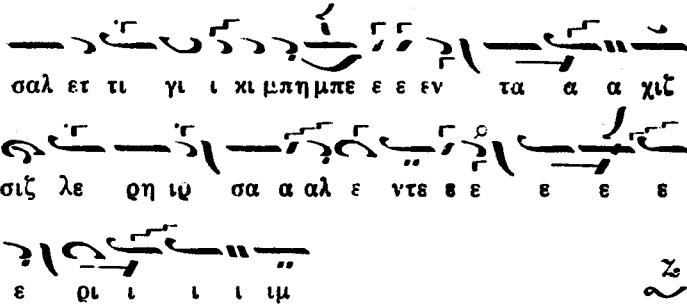 σαλ ετ τι γι ι κι μπη μπε ε ε εν τα α α χιζ
σιζ λε ρη ιρ σα α αλ ε ντε ε ε ε ε ε
ε ρι ι ι ι ιμ